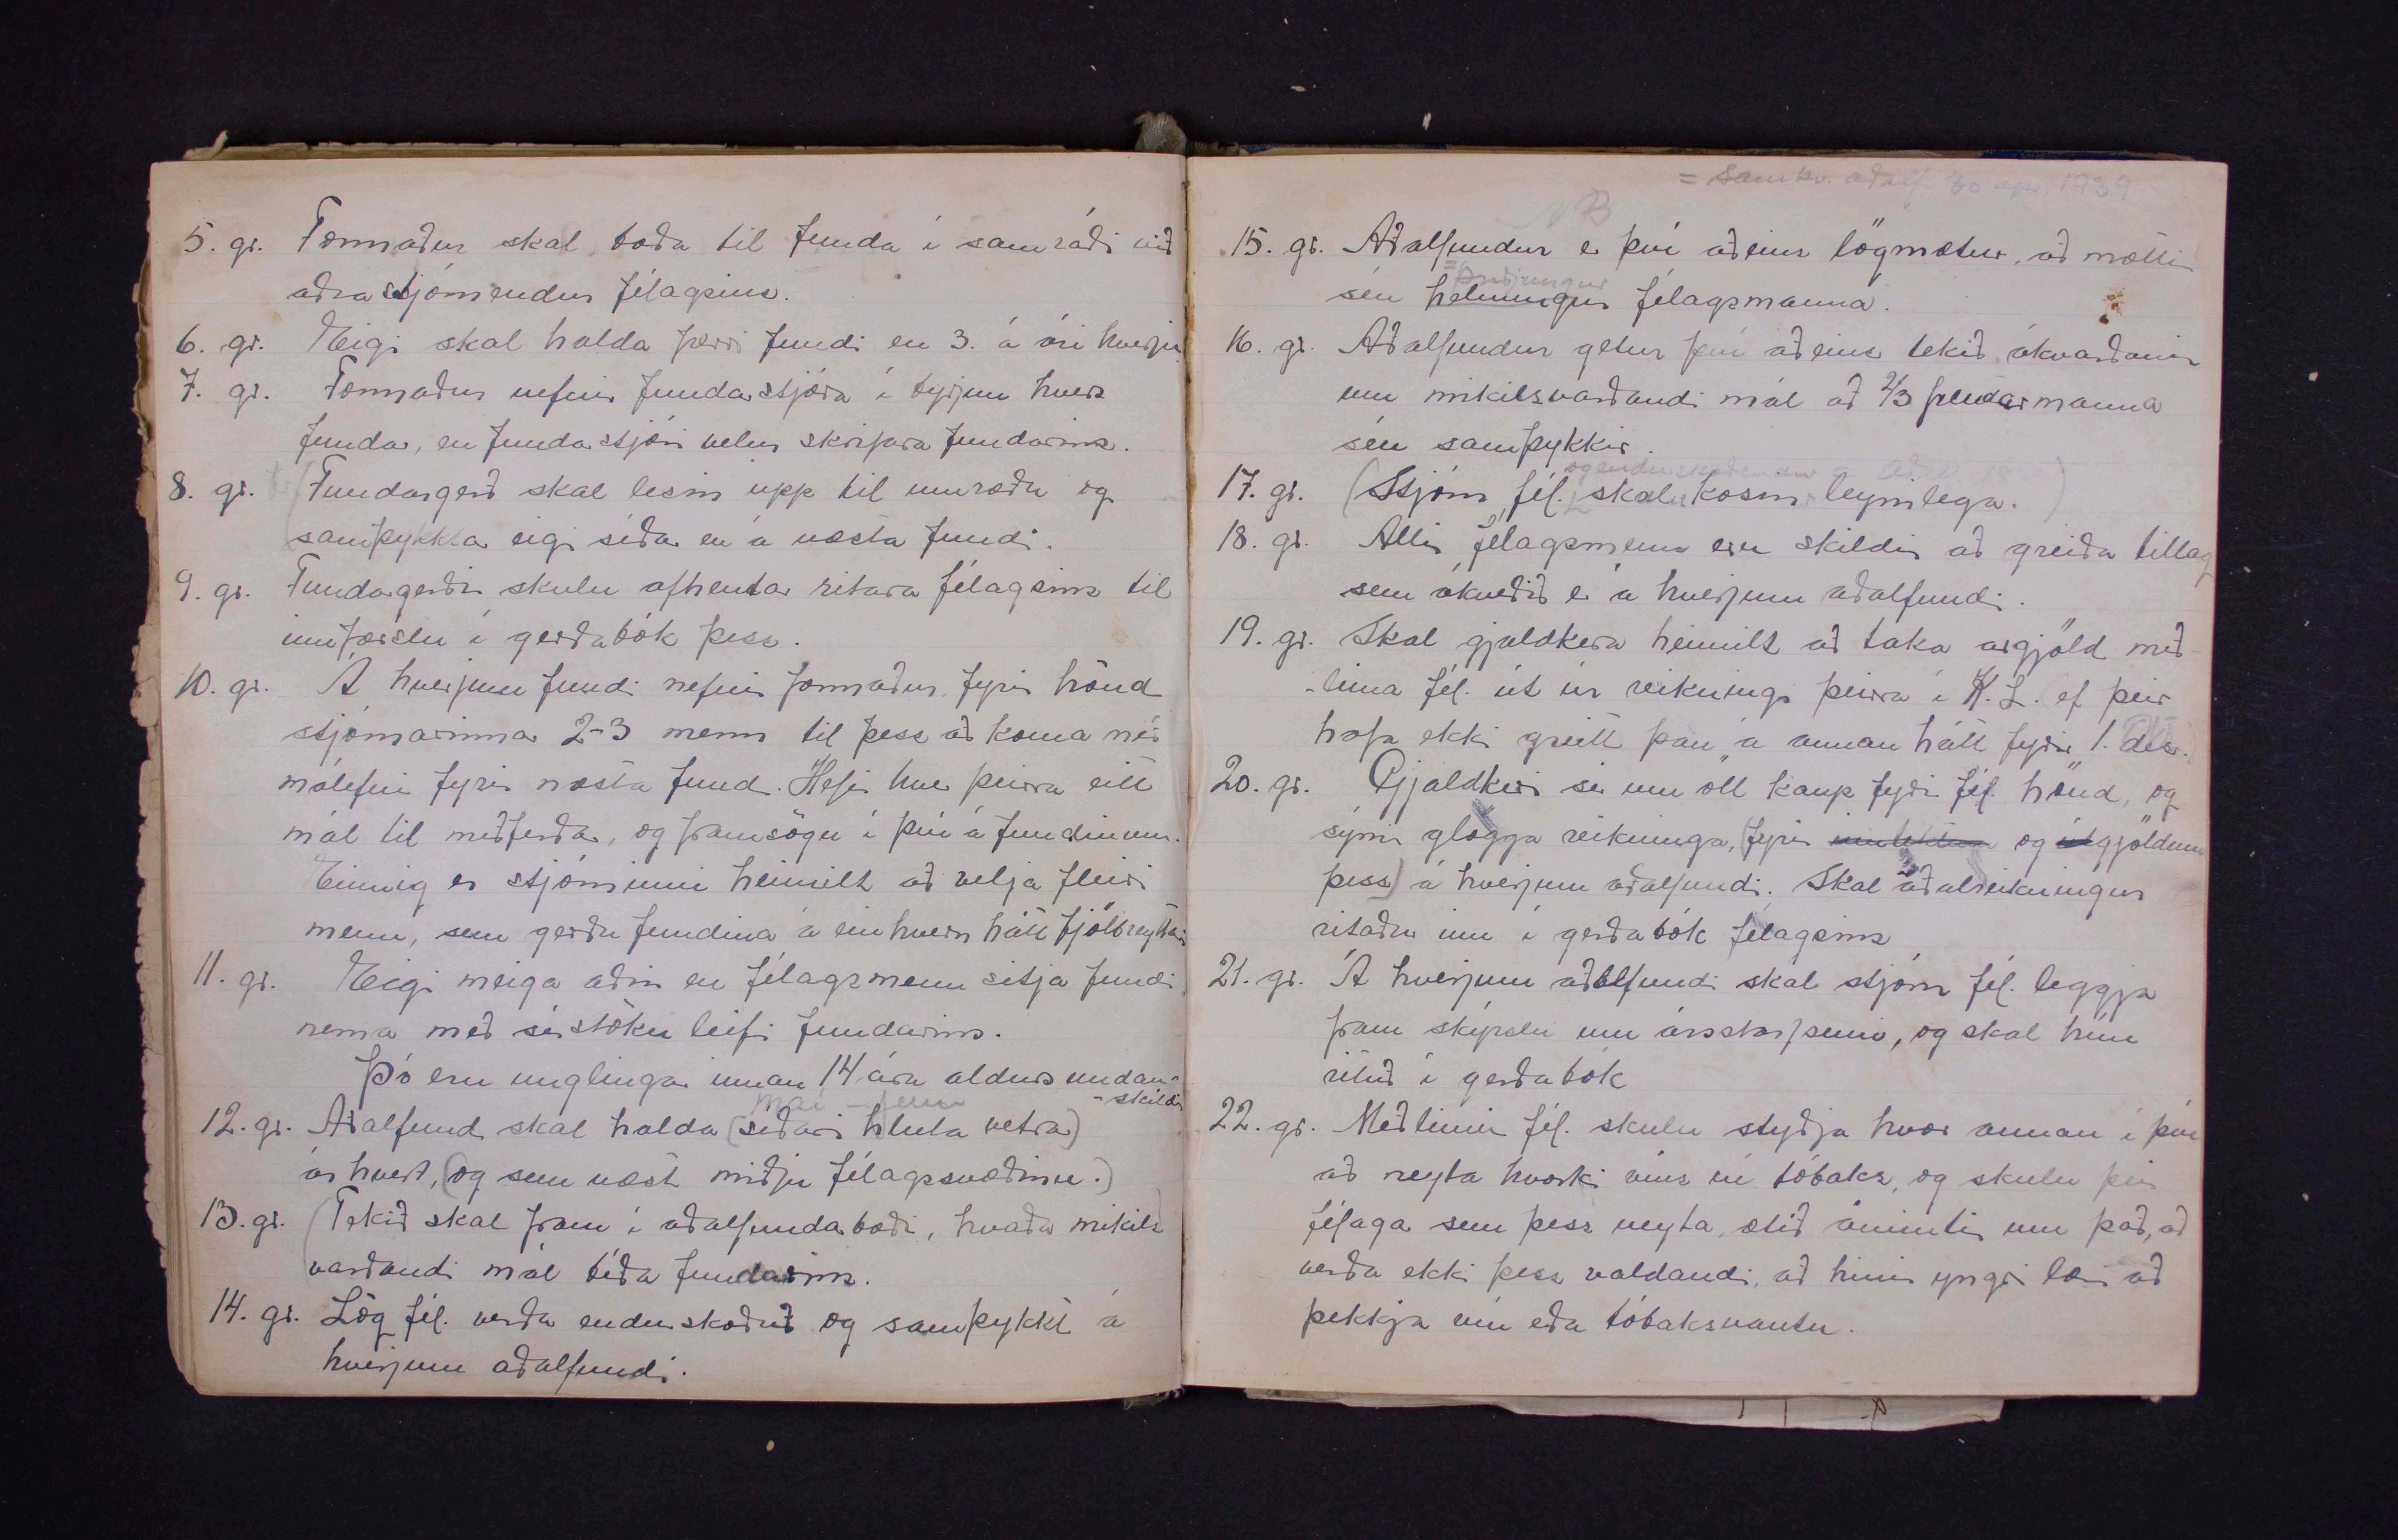 5. gr. Formaður skal boða til funda í samráði við
aðra stjórnendur félagsins.
6. gr. Eigi skal halda færri fundi en 3. á ári hverju
7. gr. Formaður nefnir fundarstjóra í byrjun hvers
fundar, en fundarstjóri velur skrifara fundarins.
8. gr. Fundargerð skal lesin upp til umræðu og
samþykkta eigi síðar en á næsta fundi.
9. gr. Fundargerðir skulu afhentar ritara félagsins til
innfærslu í gerðabók þess.
10. gr. Á hverjum fundi nefnir formaður fyrir hönd
stjórnarinnar 2-3 menn til þess að koma með
málefni fyrir næsta fund. Hefir hver þeirra eitt
mál til meðferðar, og framsögu í því á fundinum.
Einnig er stjórninni heimilt að velja fleiri
menn, sem gerðu fundina á einhvern hátt fjölbreyttari
11. gr. Eigi meiga aðrir en félagsmenn sitja fundi
nema með sérstöku leifi fundarins.
Þó eru unglingar innan 14 ára aldurs undan-
-skildir
maí - júní
12. gr. Aðalfund skal halda (síðari hluta vetrar)
ár hvert, (og sem næst miðju félagssvæðinu.)
13. gr. (Tekið skal fram í aðalfundarboði, hvaða mikils
varðandi mál bíða fundarins.
14. gr. Lög fél. verða endurskoðuð og samþykkt á
hverjum aðalfundi.
= Samkv. aðalf. 30 apr. 1939
NB
15. gr. Aðalfundur er því aðeins lögmætur, að mættir
= þriðjungur
séu helmingur félagsmanna.
16. gr. Aðalfundur getur því aðeins tekið ákvarðanir
um mikilsvarðandi mál að 2/3 fundarmanna
séu samþykkir.
og endurskoðendur
17. gr. (Stjórn fél. skal kosin leynilega.)
18. gr. Allir félagsmenn eru skildir að greiða tillag
sem ákveðið er á hverjum aðalfundi.
19. gr. Skal gjaldkera heimilt að taka argjöld með-
-lima fél. út úr reikningi þeirra í K.L. ef þeir
hafa ekki greitt þau á annan hátt fyrir 1. des.
20. gr. Gjaldkeri sér um öll kaup fyrir fél. hönd, og
sýnir glögga reikninga, (fyrir inntektum og útgjöldum
þess) á hverjum aðalfundi. Skal aðalreikningur
ritaður inn í gerðabók félagsins
21. gr. Á hverjum aðalfundi skal stjórn fél. leggja
fram skýrslu um ársstarfsemi, og skal hún
rituð í gerðabók
22. gr. Meðlimir fél. skulu styðja hvor annan í því
að neyta hvorki víns né tóbaks, og skulu þeir
félaga sem þess neyta, ætíð áminntir um það, að
verða ekki þess valdandi, að hinir yngri læri að
þekkja vín eða tóbaksnautn.